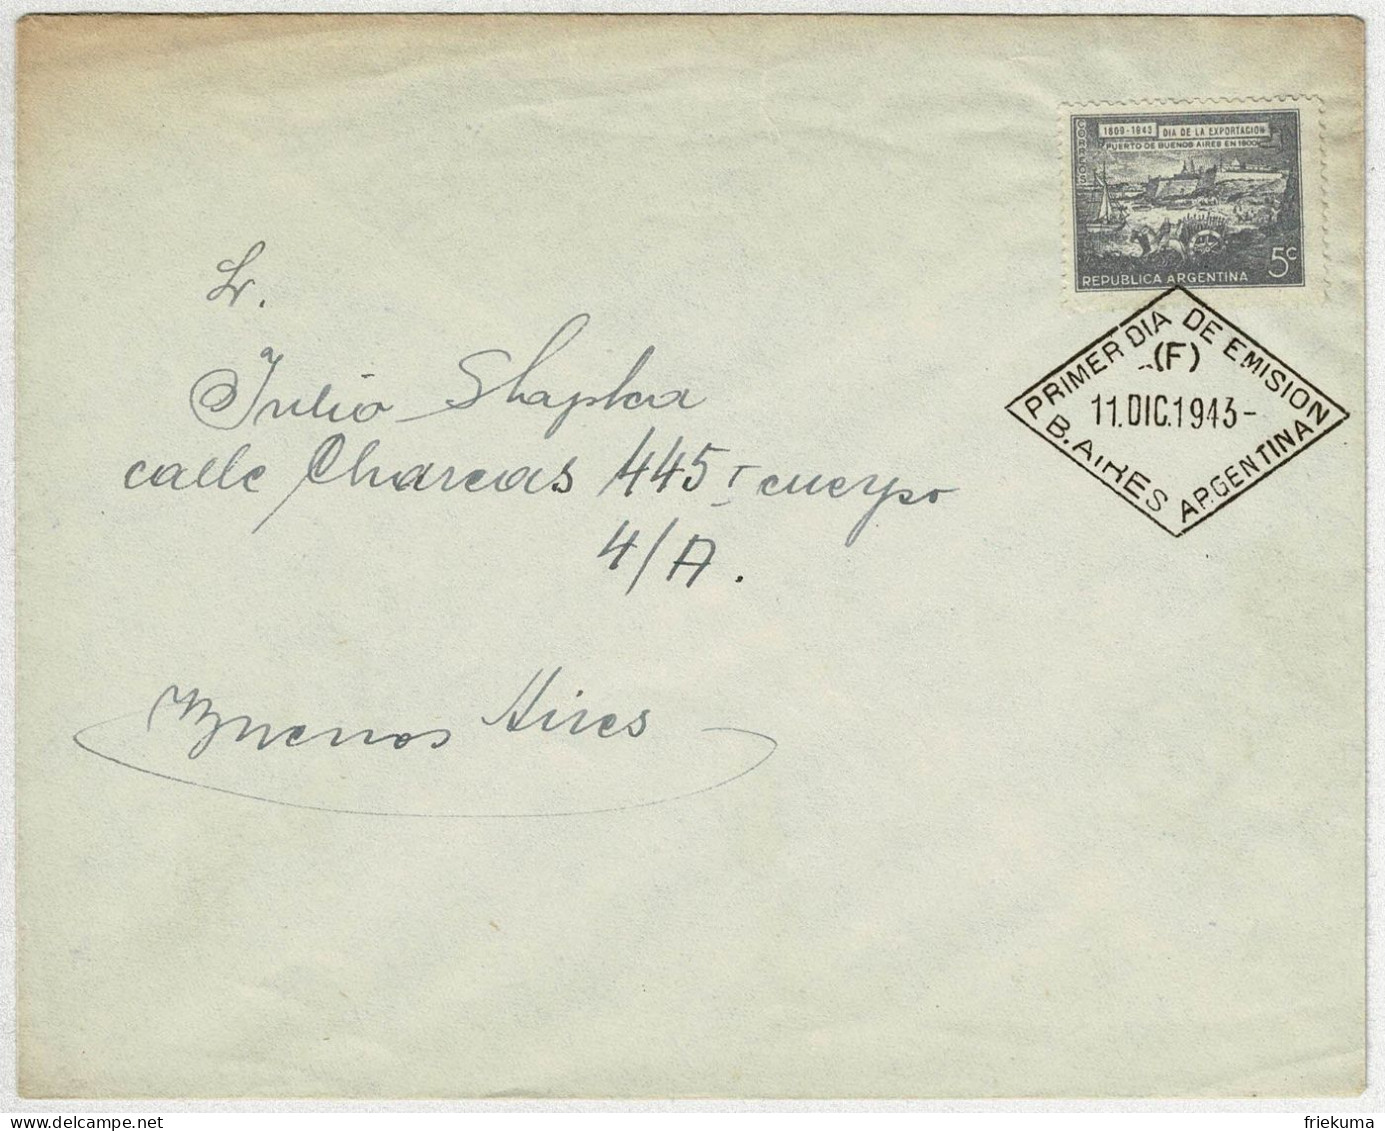 CORREOS
1809-1943 DIA DE LA EXPORTACION
PUERTO DE BUENOS AIRES EN 1800
5c
REPUBLICA ARGENTINA
PRIMER DIA DE EMISION
(F)
11.DIC.1943-
B.AIRES ARGENTINA
Sr.
Julio Shapka
calle Charcas 445 I cuerpo
4/A.
Buenos Aires
delcampe.net
friekuma